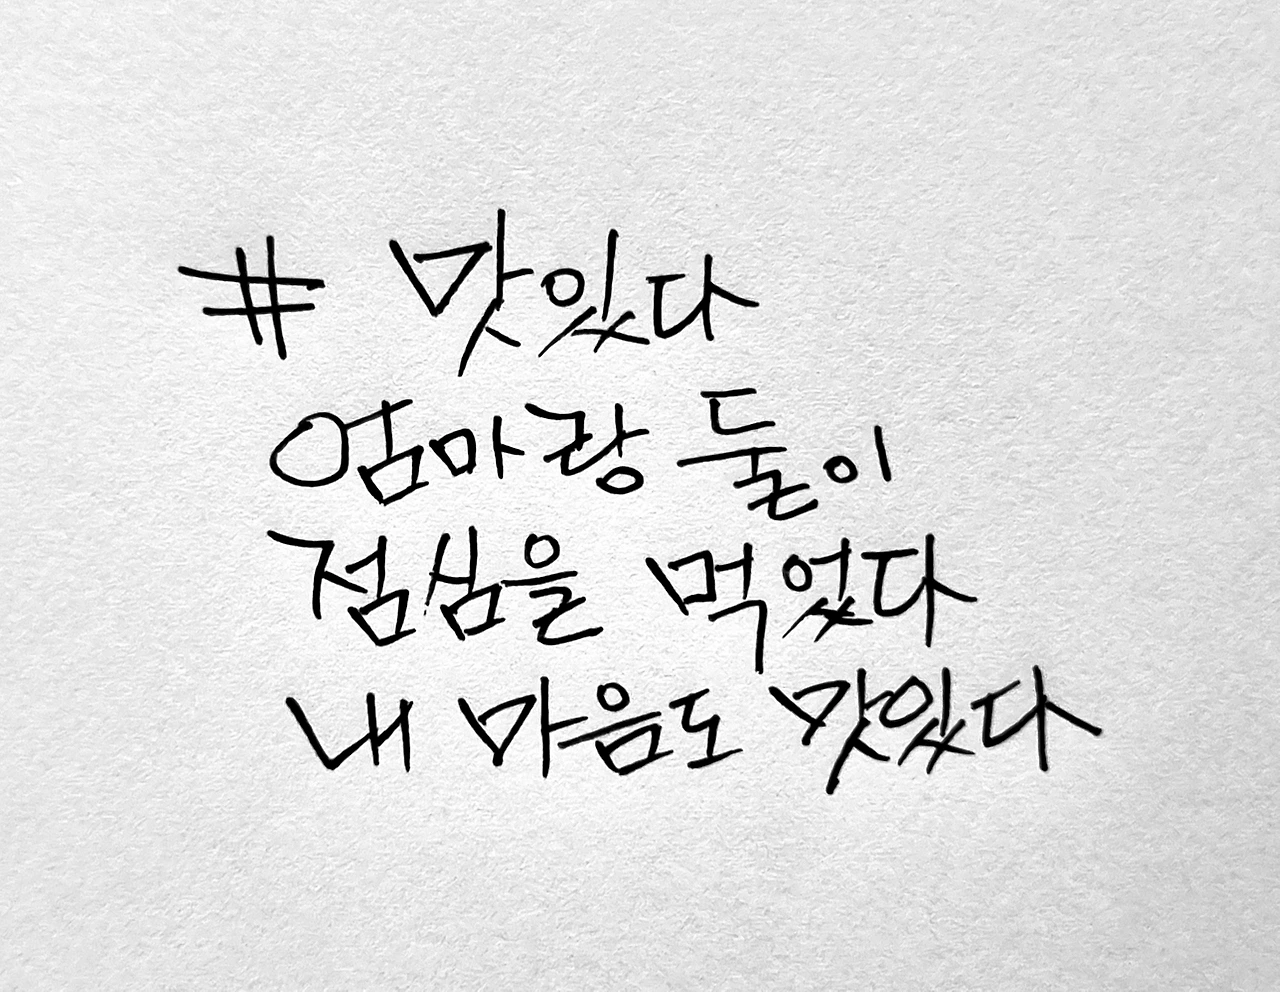 # 맛있다
엄마랑 둘이
점심을 먹었다
내 마음도 맛있다